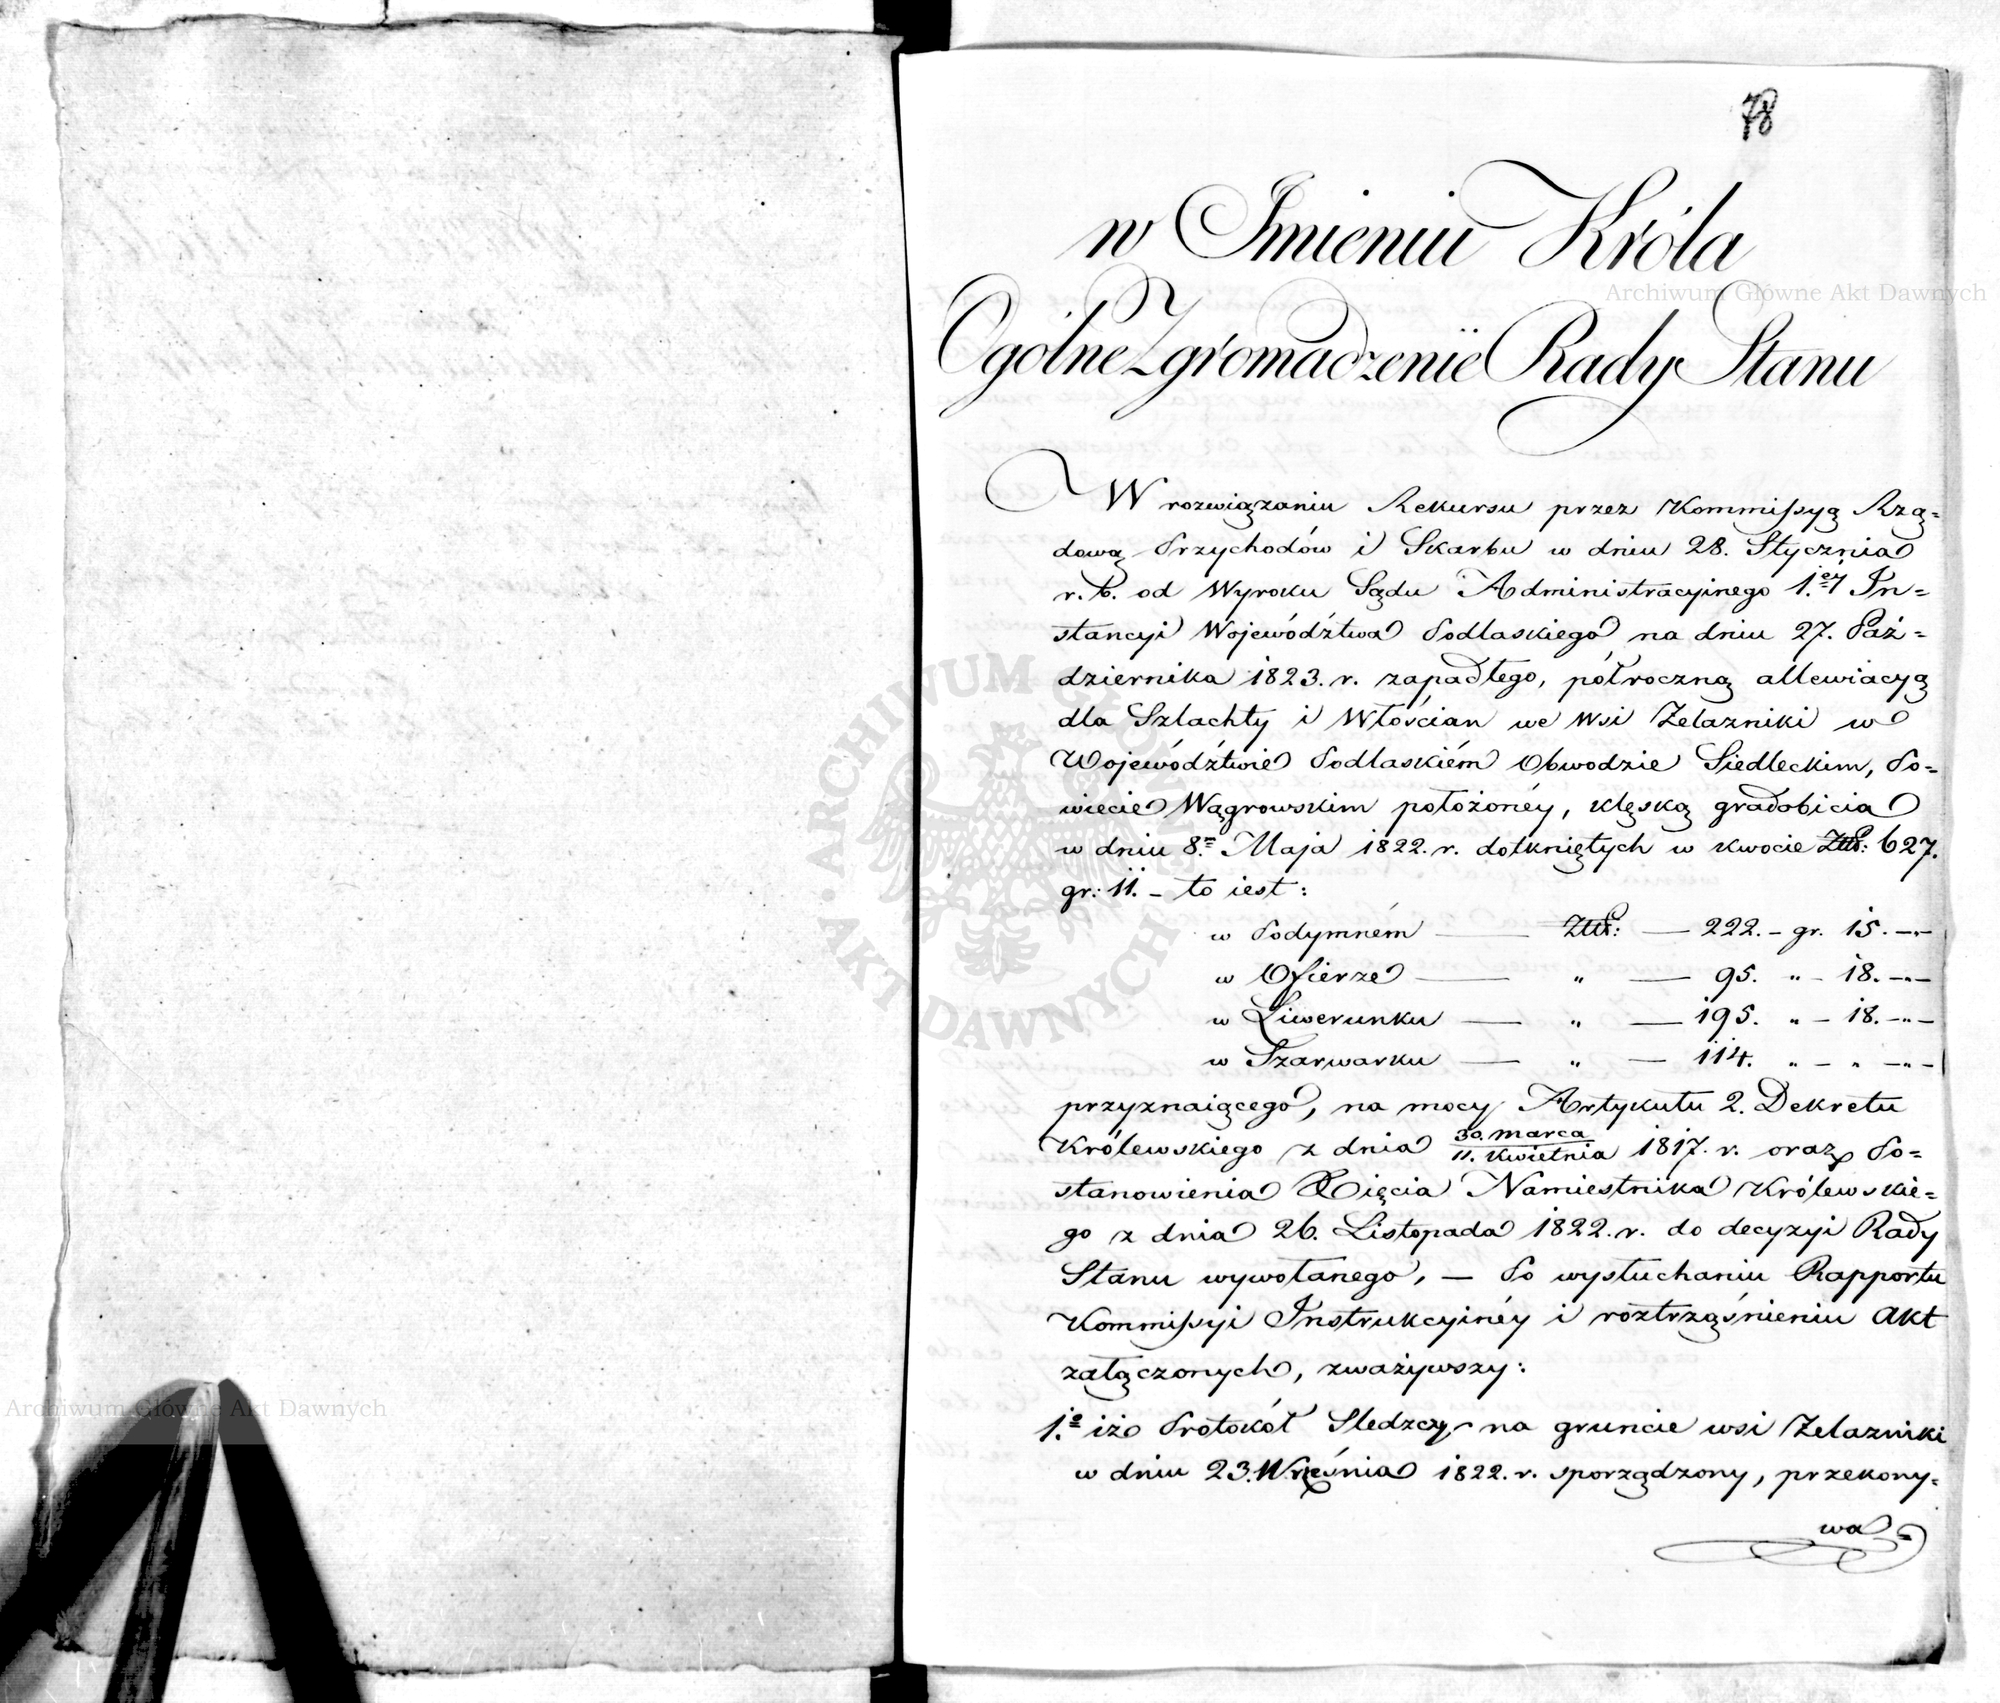 78
w Imieniu Króla
Ogólne Zgromadzenie Rady Stanu
W rozwiązaniu Rekursu przez Kommissyą Rzą=
dową Przychodów i Skarbu w dniu 28. Stycznia
r. b. od Wyroku Sądu Administracyinego 1.éy In=
stancyi Województwa Podlaskiego na dniu 27. Paź=
dziernika 1823. r. zapadłego, półroczną allewiacyą
dla Szlachty i Włościan we Wsi Zelazniki w
Województwie Podlaskiém Obwodzie Siedleckim, Po=
wiecie Wągrowskim położonéy, klęską gradobicia
w dniu 8.m Maja 1822. r. dotkniętych w kwocie Złł: 627.
gr: 11. – to iest:
w Podymném — Złł: — 222. – gr. 15. –„–
w Ofierze — „ — 95. „ – 18. –„–
w Liwerunku — „ — 195. „ – 18. –„–
w Szarwarku — „ — 114. „ – „ –„–
przyznaiącego, na mocy Artykułu 2. Dekretu
Królewskiego z dnia 30. marca / 11. kwietnia 1817. r. oraz Po=
stanowienia Xięcia Namiestnika Królewskie=
go z dnia 26. Listopada 1822. r. do decyzyi Rady
Stanu wywołanego, — Po wysłuchaniu Rapportu
Kommissyi Instrukcyinéy i roztrząśnieniu Akt
załączonych, zważywszy:
1.o iż Protokół Sledzczy na gruncie wsi Zelazniki
w dniu 23. Września 1822. r. sporządzony, przekony=
wa=
Archiwum Główne Akt Dawnych
Archiwum Główne Akt Dawnych
ARCHIWUM
AKT DAWNYCH